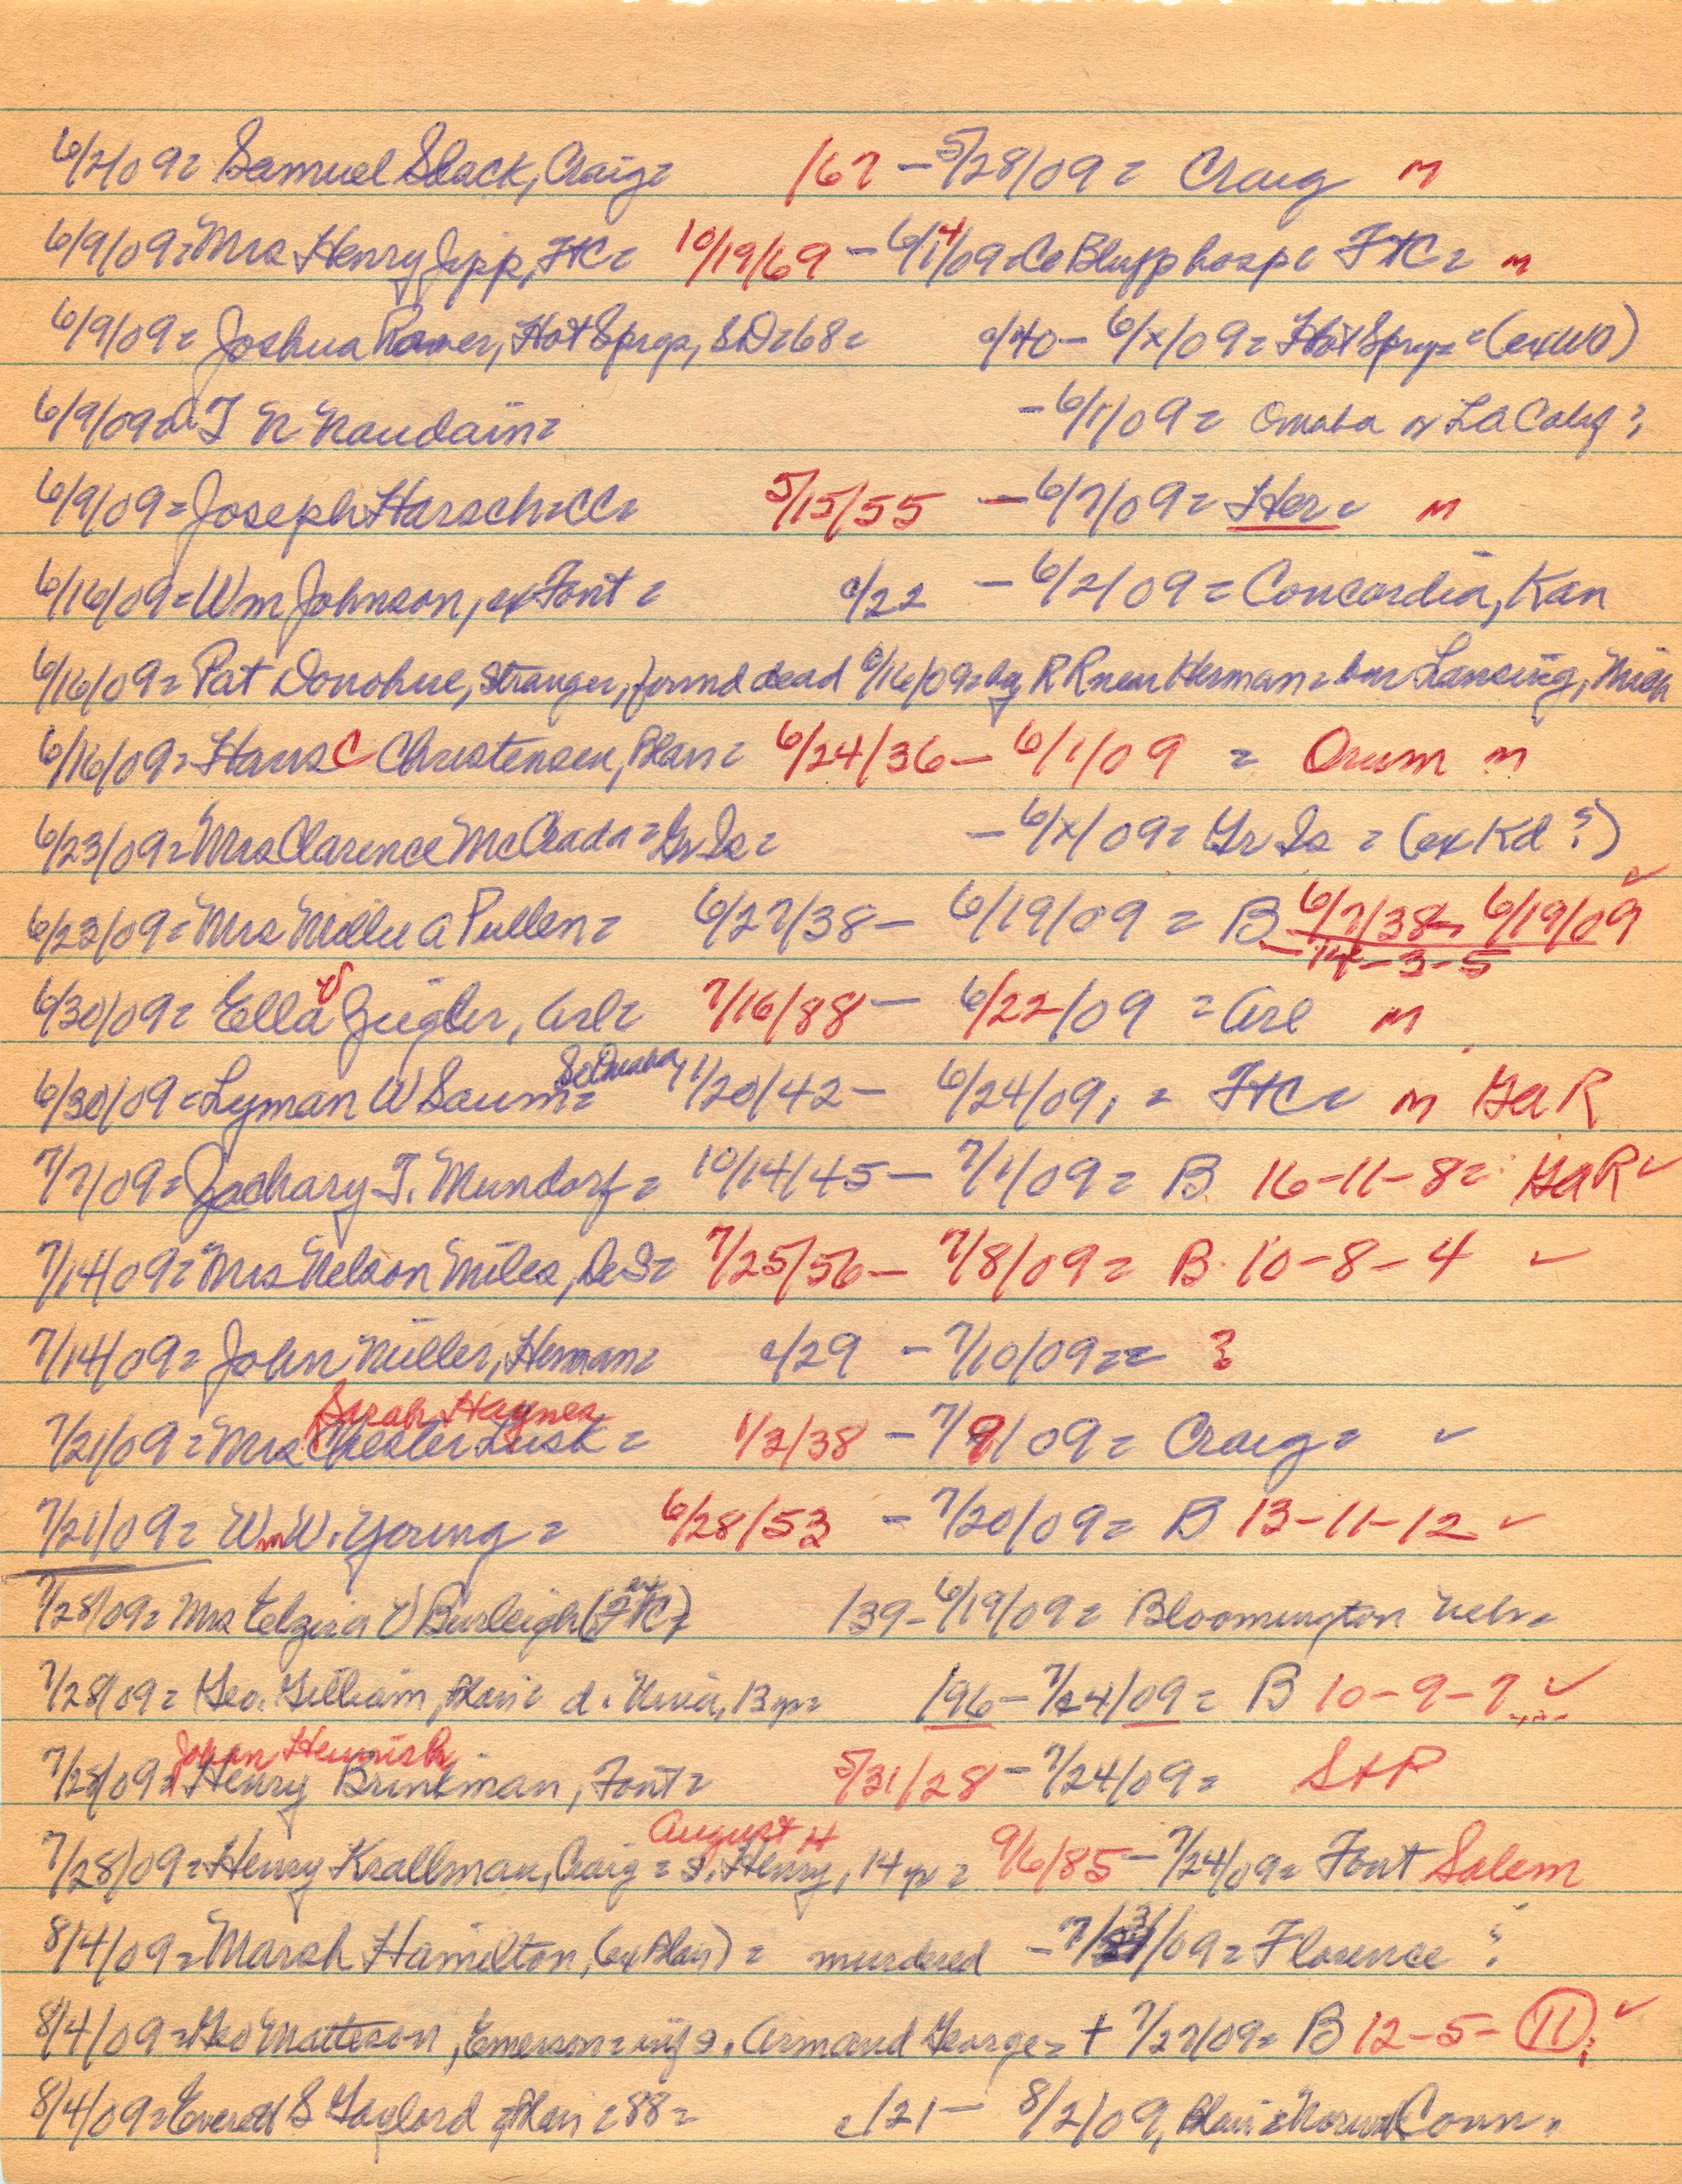 6/2/09= Samuel Slack, Craig= /67 – 5/28/09= Craig m
6/9/09= Mrs Henry Jipp, FtC= 10/19/69 – 6/14/09= Co Bluff hosp= FtC= m
6/9/09= Joshua Hot Sprgs, SD=68= c/40 – 6/x/09= Hot Sprgs= (exWO)
6/9/09= T N Naudain= – 6/1/09= Omaha or LA Calif?
6/9/09= Joseph Harsch=CC= 5/15/55 – 6/7/09= Her= m
6/16/09= Wm Johnson, exFont= c/22 – 6/2/09= Concordia, Kan
6/16/09= Pat Donohue, stranger, found dead 6/16/09=by RR near Herman= Lansing, Mich
6/16/09= Hans C Christensen, Blair= 6/24/36 – 6/1/09 = Orum m
6/23/09= Mrs Clarence McCrada=Gr Is= – 6/x/09= Gr Is = (ex Kd?)
6/23/09= Mrs Millie A Pullen= 6/27/38 – 6/19/09 = B 6/7/38– 6/19/09 ✓
14–3–5
6/30/09= Ella Ziegler, Arl= 7/16/88 – 6/22/09 = Arl m
6/30/09= Lyman W Saum= So Omaha, 11/20/42 – 6/24/09, = FtC= m GaR
7/7/09= Zachary T. Mundorf= 10/14/45 – 7/1/09= B 16–11–8= GaR ✓
7/14/09= Mrs Nelson Miles, DeS= 7/25/56 – 7/8/09= B 10–8–4 ✓
7/14/09= John Miller, Herman= c/29 – 7/10/09== ?
Sarah Haynes
7/21/09= Mrs Chester Lusk= 1/2/38 – 7/9/09= Craig= ✓
7/21/09= Wm W. Young= 6/28/53 – 7/20/09= B 13–11–12 ✓
7/28/09= Mrs Elzina V Burleigh (ex FtC)= /39 – 6/19/09= Bloomington Nebr=
7/28/09= Geo. Gilliam, Blair= d. 13yr= /96 – 7/24/09= B 10–9–7 ✓
Johan Heinrich
7/28/09= Henry Brinkman, Font= 5/31/28 – 7/24/09= StP
August H
7/28/09= Henry Krallman, Craig= s. Henry, 14yr= 9/6/85 – 7/24/09= Font Salem
8/4/09= Marsh Hamilton, (ex Blair)= murdered – 7/31/09= Florence ?
8/4/09= Geo Matteson, Emerson= inf s. Armand George= + 7/27/09= B 12–5– 11? ✓
8/4/09= Everett S Gaylord =Blair =88= c/21 – 8/2/09, Blair= Conn.